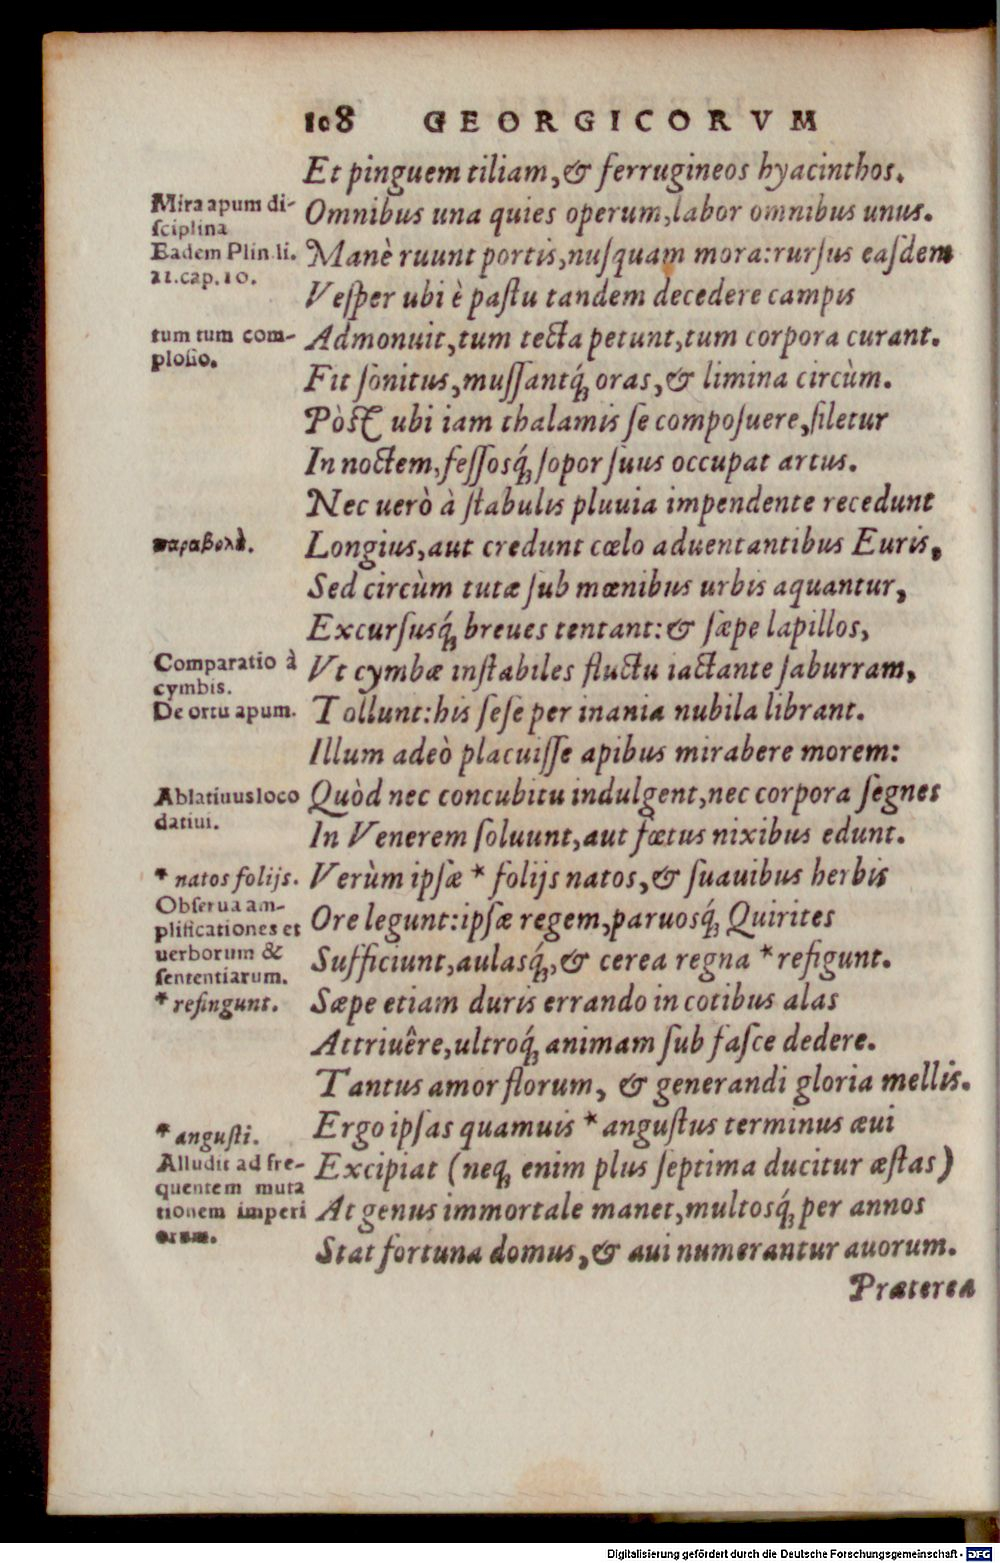 108 GEORGICORVM
Et pinguem tiliam, & ferrugineos hyacinthos.
Omnibus una quies operum, labor omnibus unus.
Manè ruunt portis, nusquam mora: rursus easdem
Vesper ubi è pastu tandem decedere campis
Admonuit, tum tecta petunt, tum corpora curant.
Fit sonitus, mussantq́; oras, & limina circùm.
Pòst ubi iam thalamis se composuere, siletur
In noctem, fessosq́; sopor suus occupat artus.
Nec uerò à stabulis pluuia impendente recedunt
Longius, aut credunt cœlo aduentantibus Euris,
Sed circùm tutæ sub mœnibus urbis aquantur,
Excursusq́; breues tentant: & sæpe lapillos,
Vt cymbæ instabiles fluctu iactante saburram,
Tollunt: his sese per inania nubila librant.
Illum adeò placuisse apibus mirabere morem:
Quòd nec concubitu indulgent, nec corpora segnes
In Venerem soluunt, aut fœtus nixibus edunt.
Verùm ipsæ * folijs natos, & suauibus herbis
Ore legunt: ipsæ regem, paruosq́; Quirites
Sufficiunt, aulasq́;, & cerea regna * refigunt.
Sæpe etiam duris errando in cotibus alas
Attriuêre, ultroq́; animam sub fasce dedere.
Tantus amor florum, & generandi gloria mellis.
Ergo ipsas quamuis * angustus terminus æui
Excipiat (neq; enim plus septima ducitur æstas)
At genus immortale manet, multosq́; per annos
Stat fortuna domus, & aui numerantur auorum.
Præterea
Mira apum di-
sciplina
Eadem Plin li.
21.cap.10.
tum tum com-
plosio.
παραβολὴ.
Comparatio à
cymbis.
De ortu apum.
Ablatiuus loco
datiui.
* natos folijs.
Obserua am-
plificationes et
uerborum &
sententiarum.
* refingunt.
* angusti.
Alludit ad fre-
quentem muta
tionem imperi
orum.
Digitalisierung gefördert durch die Deutsche Forschungsgemeinschaft - DFG